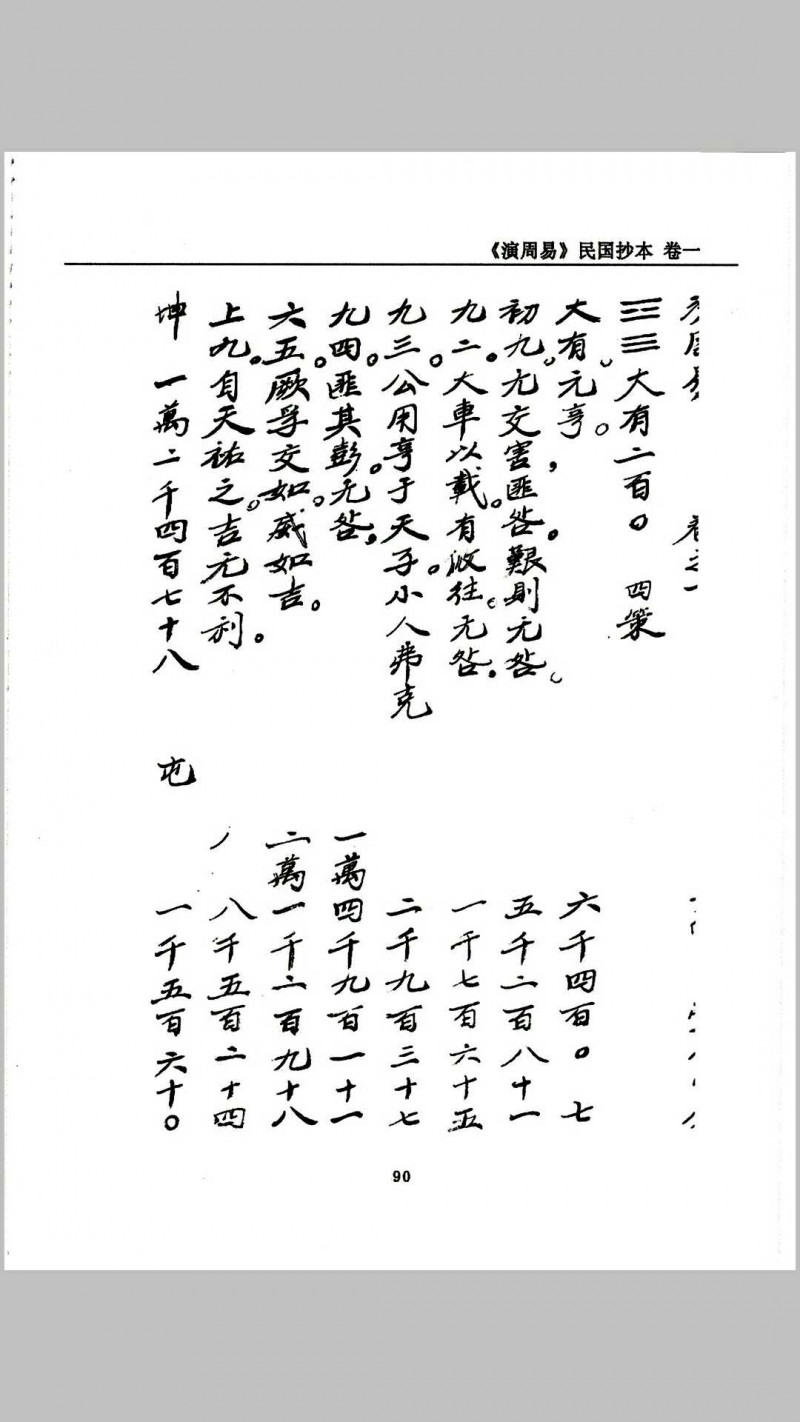 《演周易》民国抄本 卷一
卷之一
大有二百〇 四策
大有。元亨。 六千四百〇七
初九。无交害，匪咎。艱則无咎。 五千二百八十一
九二。大車以載。有攸往。无咎。 一千七百六十五
九三。公用亨于天子。小人弗克 二千九百三十七
九四。匪其彭。无咎， 一萬四千九百一十一
六五。厥孚交如。威如吉。 二萬一千二百九十八
上九。自天祐之。吉无不利。 八千五百二十四
坤 一萬二千四百七十八 屯 一千五百六十〇
90